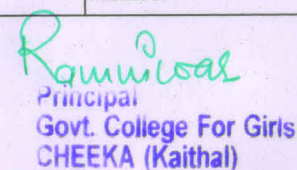 Ramniwas
Principal
Govt. College For Girls
CHEEKA (Kaithal)